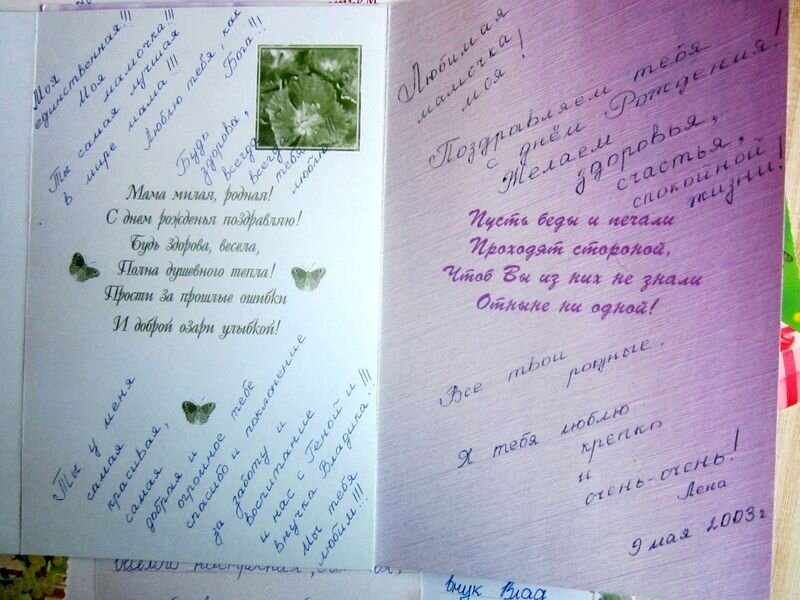 Моя
единственная!!!
Моя мамочка!!!
Ты самая лучшая
в мире мама!!!
Люблю тебя, как
Бога!!!
Будь
здорова,
всегда
всегда
тебя
люблю!!!
Мама милая, родная!
С днем рожденья поздравляю!
Будь здорова, весела,
Полна душевного тепла!
Прости за прошлые ошибки
И доброй озари улыбкой!
Ты у меня
самая
красивая,
самая
добрая и тебе
огромное
спасибо и поклонение
за заботу и
воспитание
и нас с Геной и
внучка Владика!!!
Мы тебя
любим!!!
Любимая
мамочка
моя!
Поздравляем тебя
с днём Рождения!
Желаем
здоровья,
счастья,
спокойной
жизни!
Пусть беды и печали
Проходят стороной,
Чтоб Вы из них не знали
Отныне ни одной!
Все твои
родные.
Я тебя люблю
крепко
и
очень-очень!
Лена
9 мая 2003 г
внук Влад